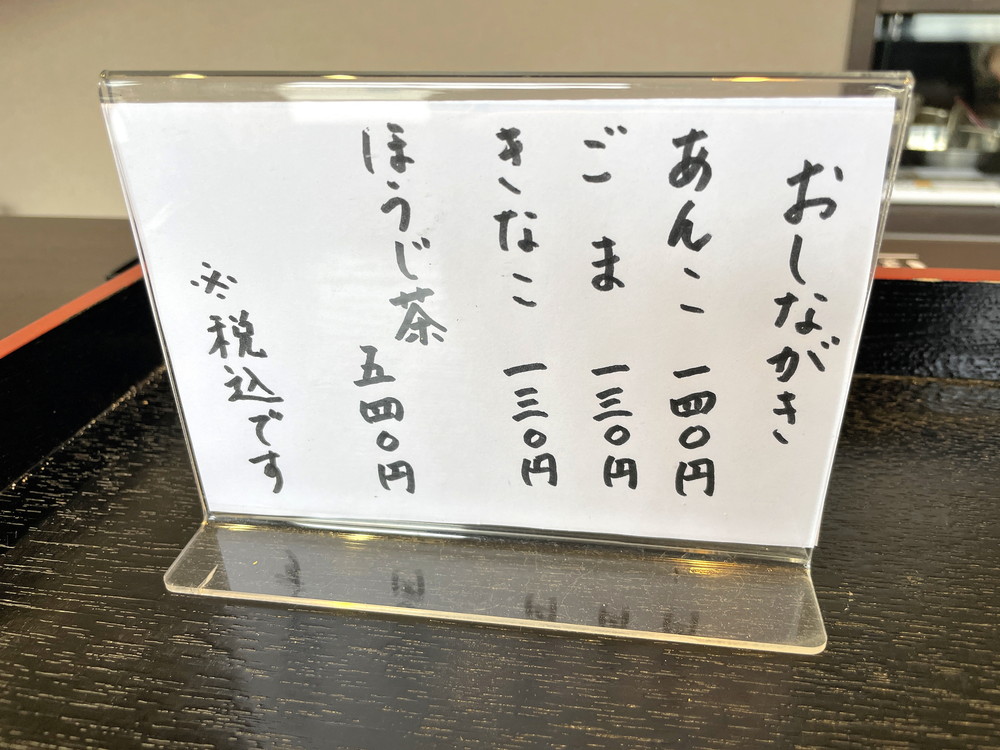 おしながき
あんこ 一四〇円
ごま 一三〇円
きなこ 一三〇円
ほうじ茶 五四〇円
※税込です